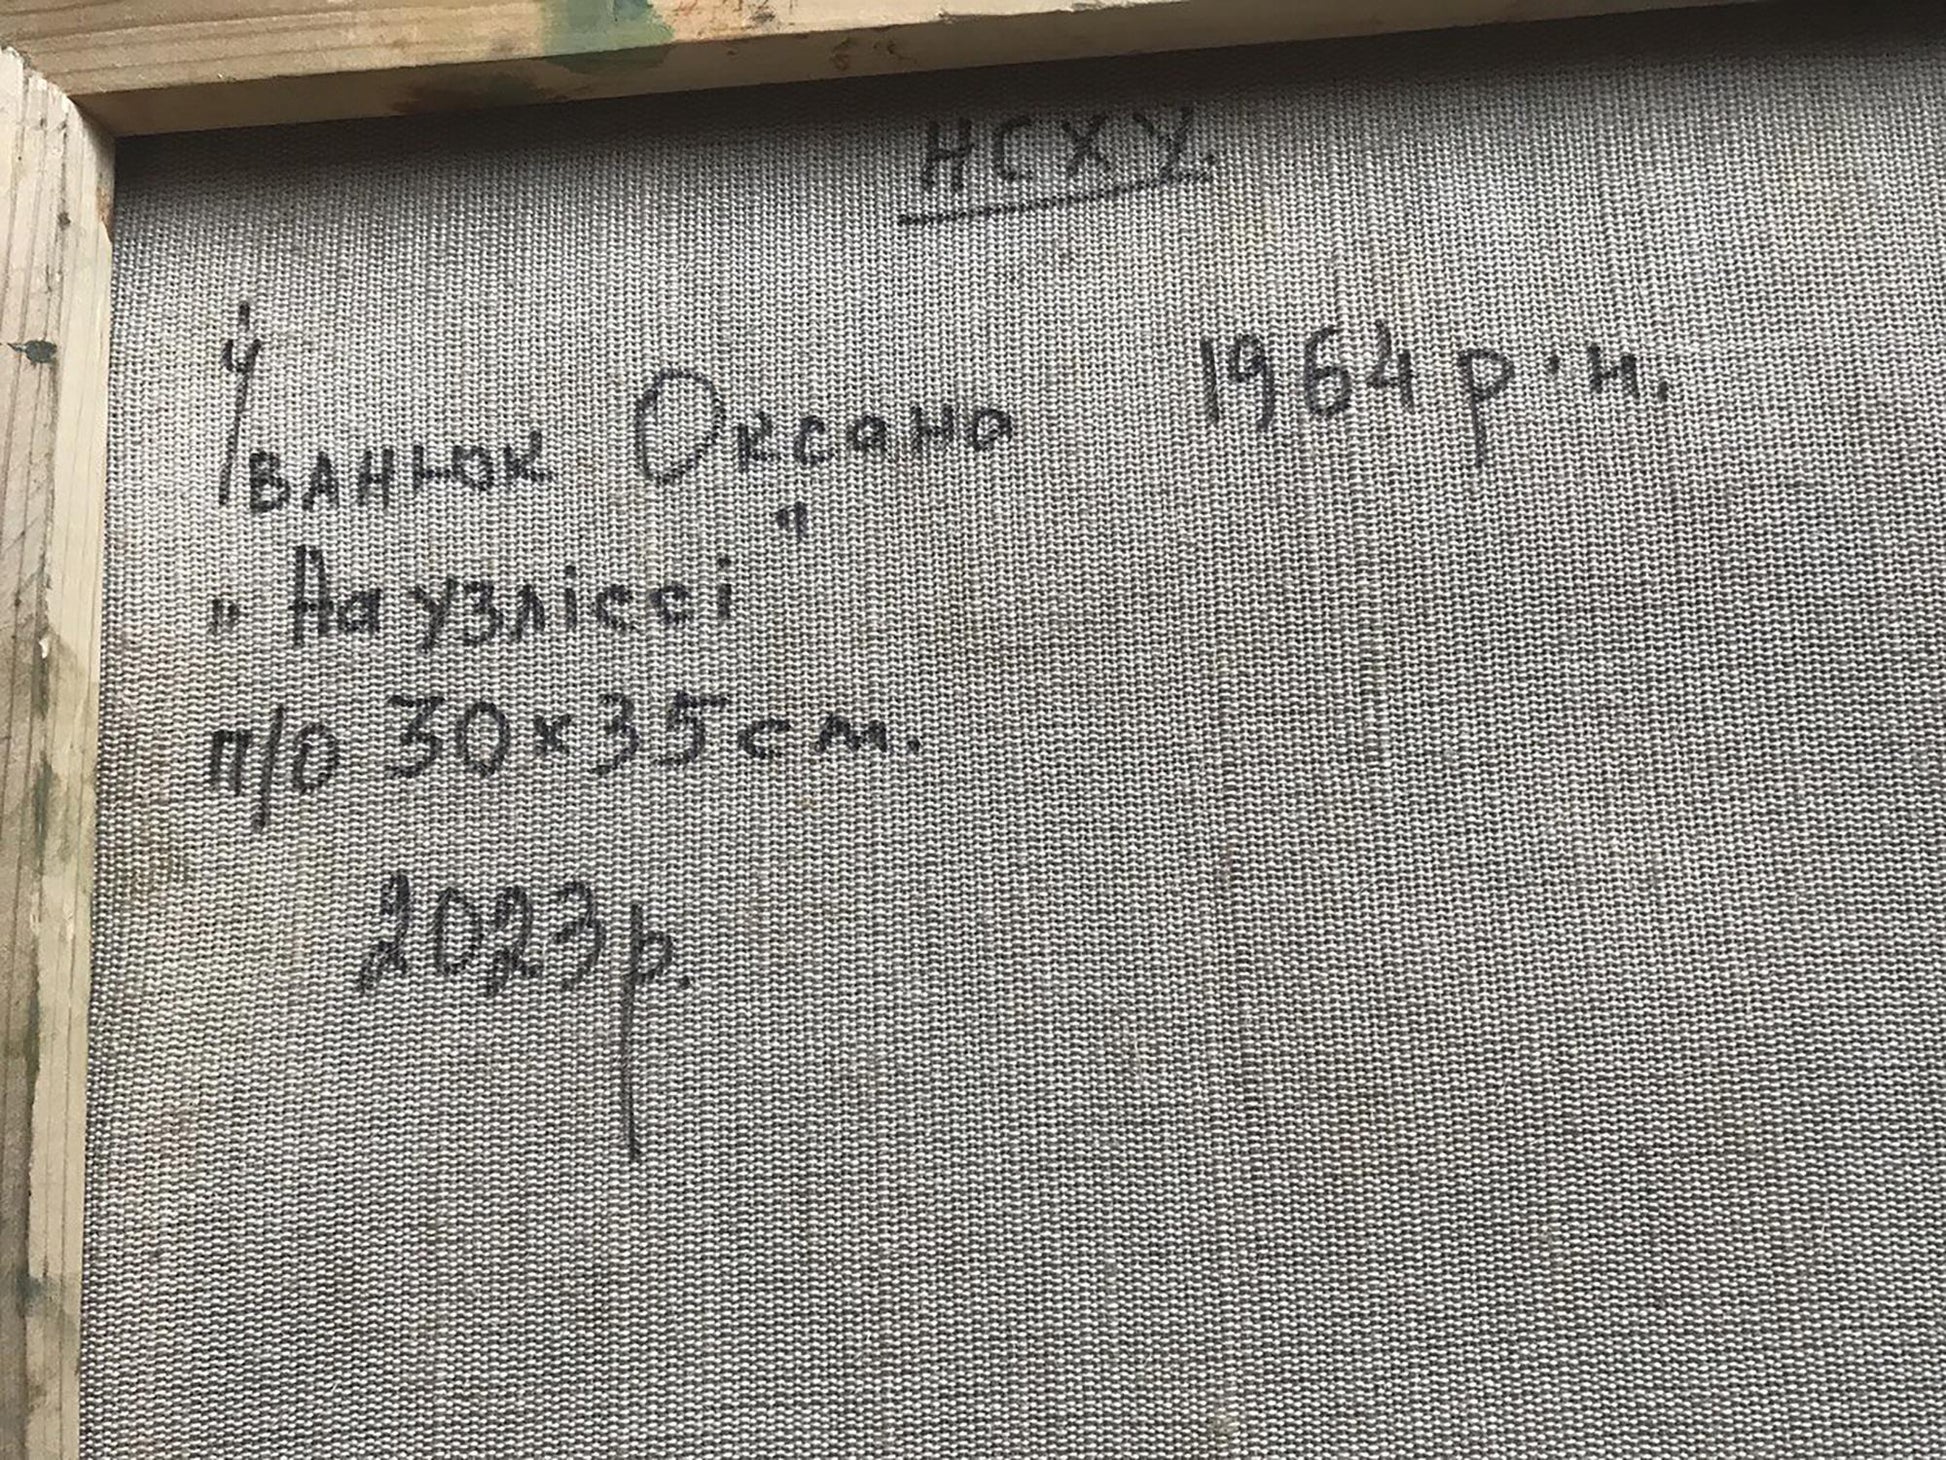 НСХУ.
Іванюк Оксана 1964 р.н.
"На узліссі"
п/о 30х35 см.
2023р.